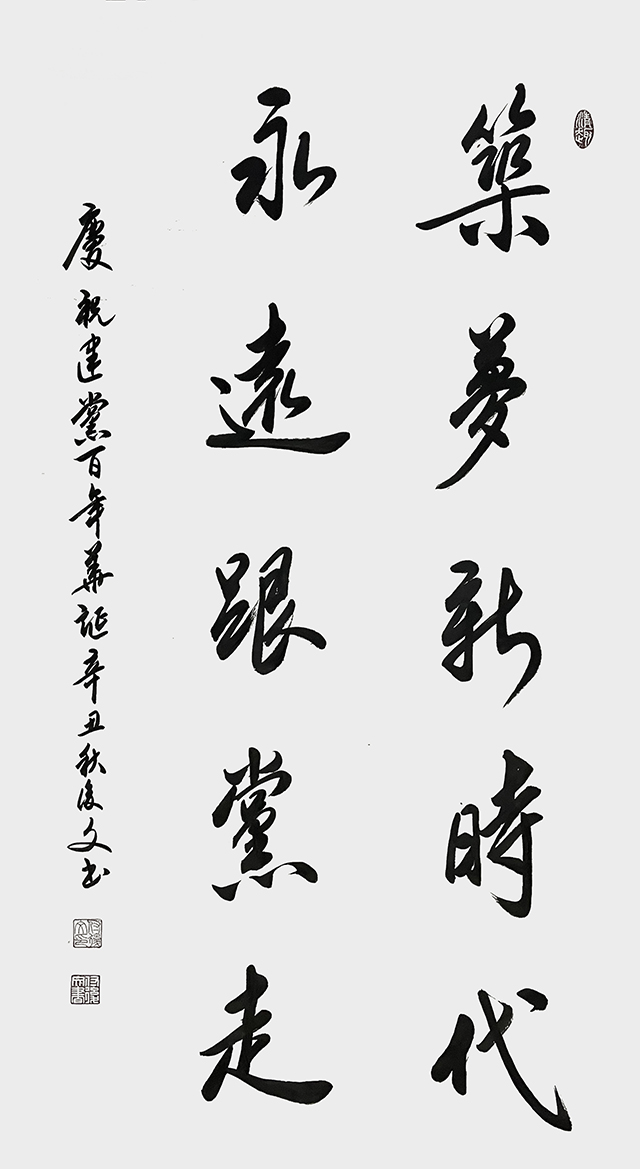 築夢新時代
永遠跟黨走
慶祝建黨百年華誕辛丑秋後文書